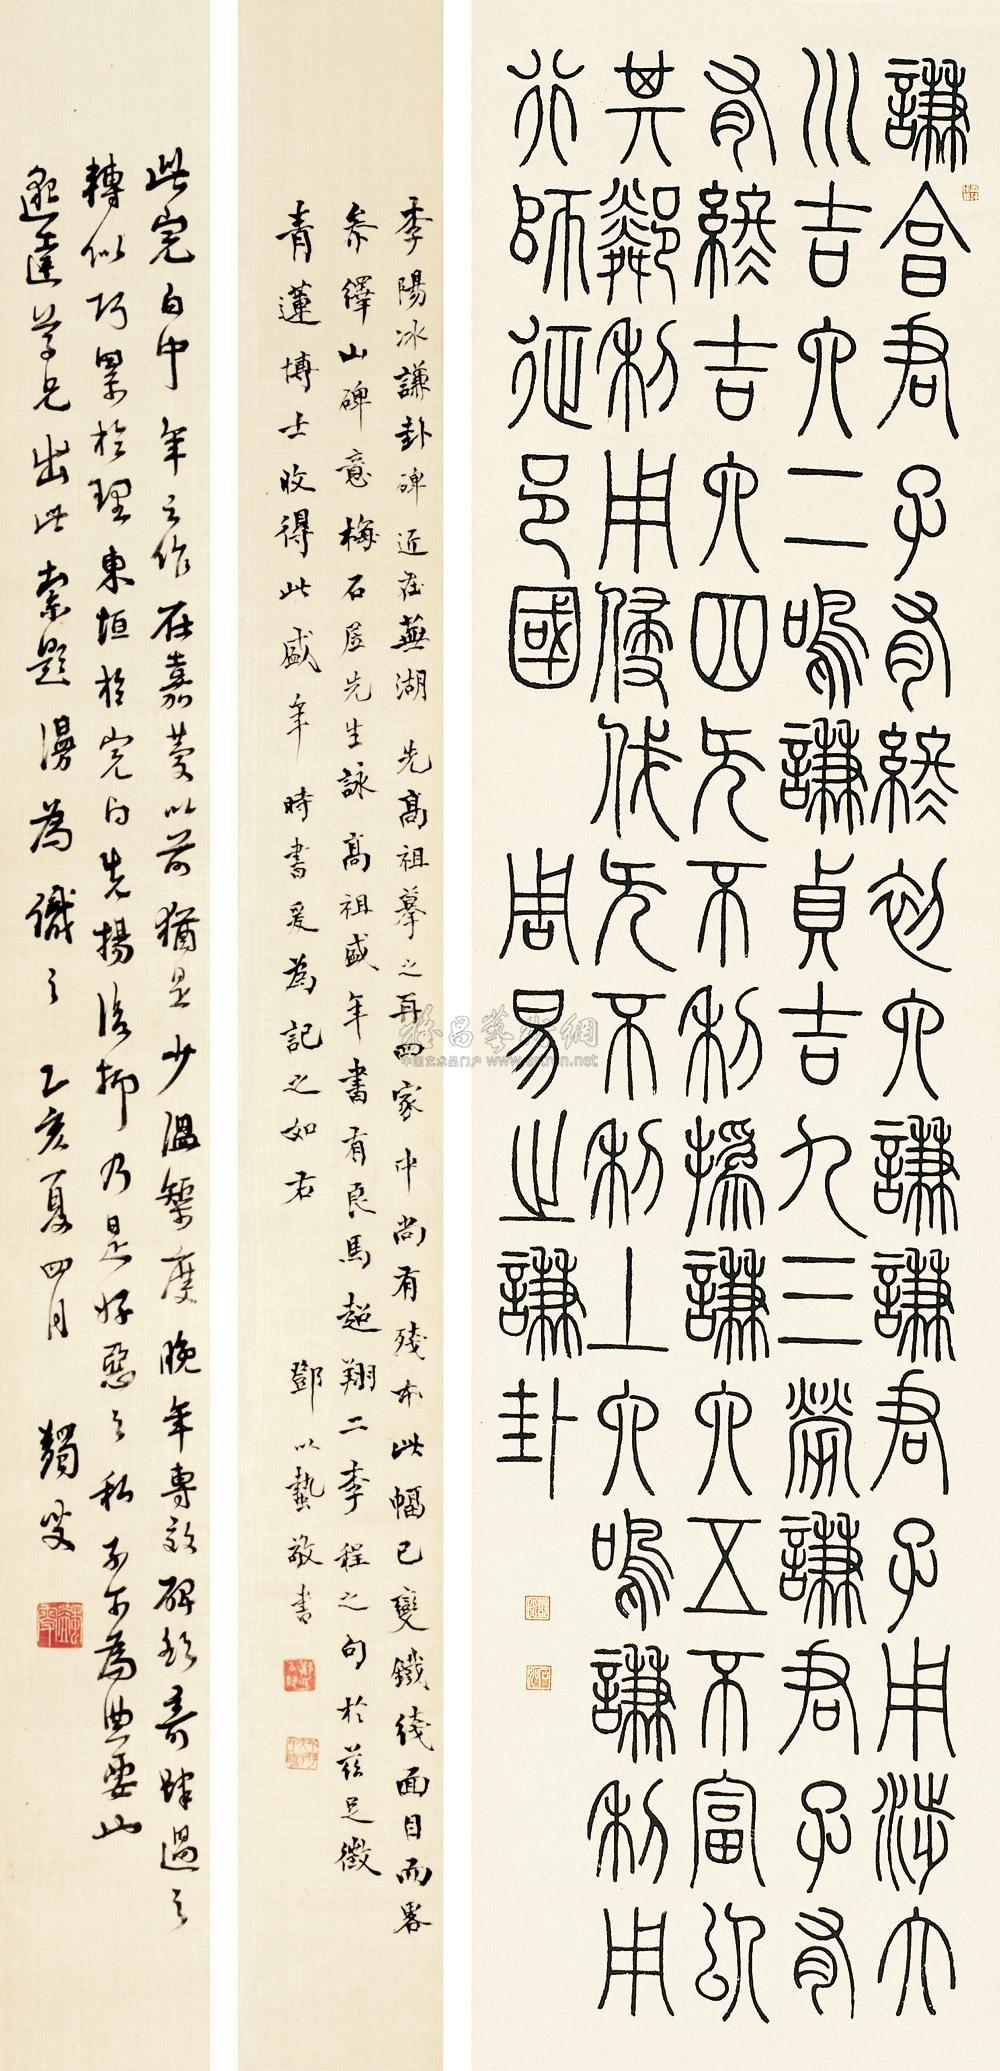 謙亯君子有終初六謙謙君子用涉大
川吉六二鳴謙貞吉九三勞謙君子有
有終吉六四无不利撝謙六五不富以
其鄰利用侵伐无不利上六鳴謙利用
行師征邑國 周易上謙卦
李陽冰謙卦碑近在蕪湖先高祖摹之再四家中尚有殘本此幅已變鐵綫面目而畧
參繹山碑意梅石居先生詠高祖盛年書有良馬超翔二李程之句於茲足徵
青蓮博士收得此盛年時書爰為記之如右 鄧以蟄敬書
此完白中年之作在嘉慶以前猶是少溫榘度晚年專效碑額奇肆過之
轉似巧累於理東垣於完白先揚後抑乃是好惡之私不為典要
學兄出此索題漫為識之乙亥夏四月 蠲叟
中国艺术品门户 www.cnarton.net